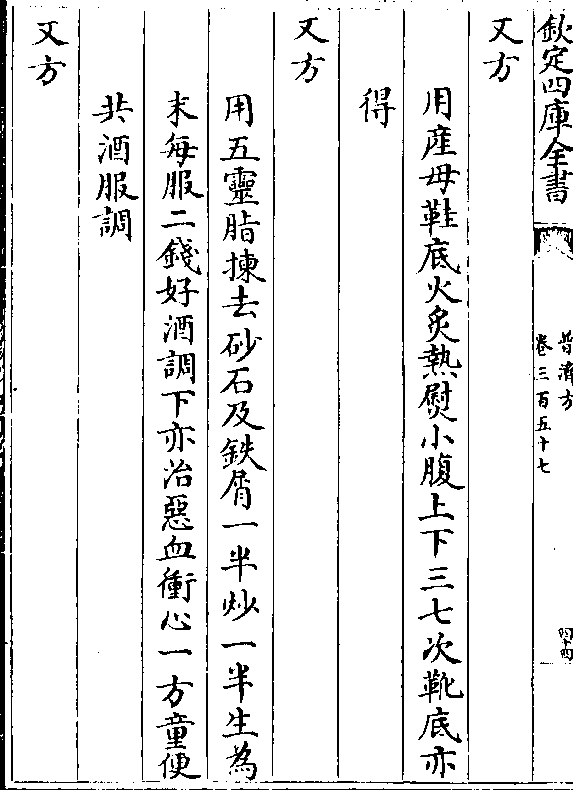 欽定四庫全書
普濟方
卷三百五十七
四十四
又方
用産母鞋底火炙熱熨小腹上下三七次靴底亦
得
又方
用五靈脂揀去砂石及鉄屑一半炒一半生為
末每服二錢好酒調下亦治惡血衝心一方童便
共酒服調
又方